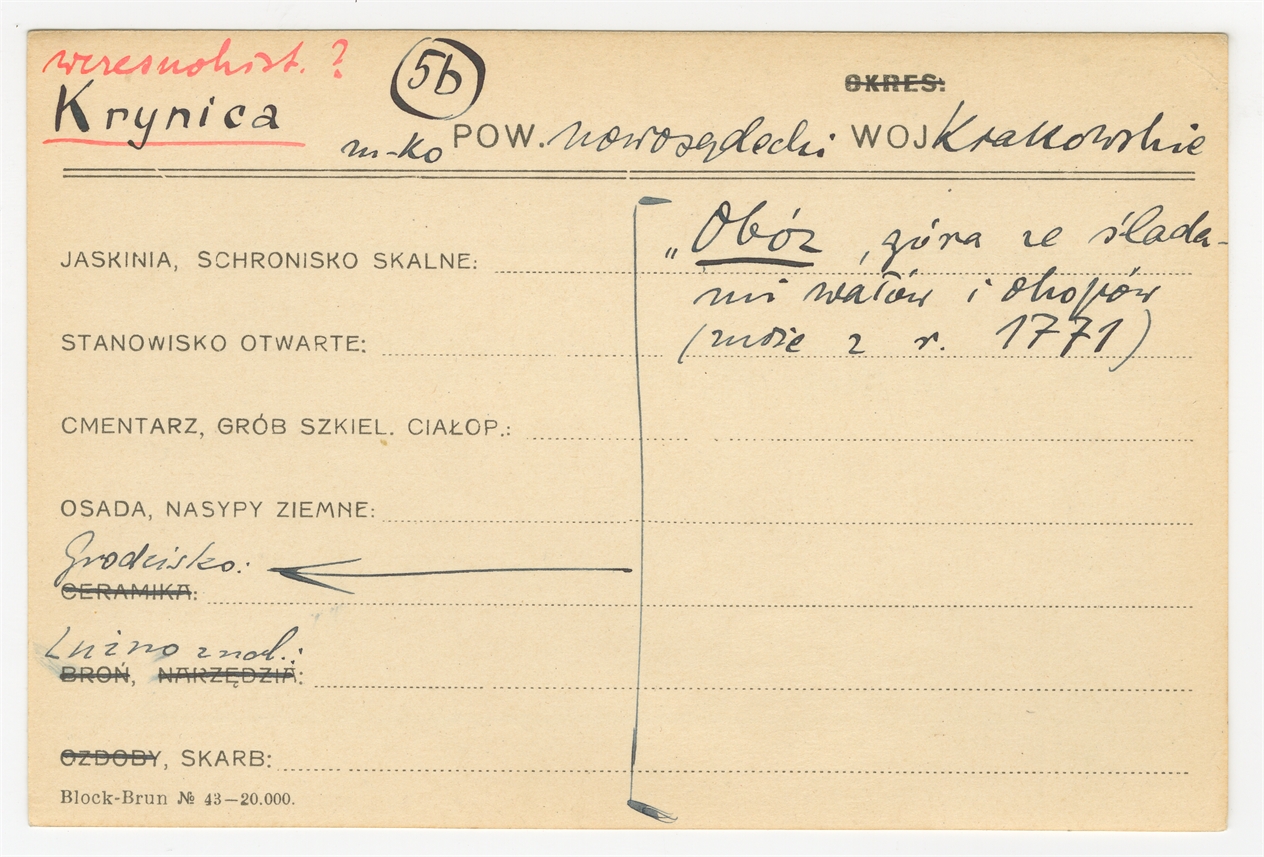 wczesnohist. ?
5b
OKRES:
Krynica
m-ko POW. nowosądecki WOJ Krakowskie
„Obóz, góra ze ślada-
mi wałów i okopów
(może z r. 1771)
JASKINIA, SCHRONISKO SKALNE:
STANOWISKO OTWARTE:
CMENTARZ, GRÓB SZKIEL. CIAŁOP.:
OSADA, NASYPY ZIEMNE:
Grodzisko:
CERAMIKA:
Luźno znal.:
BROŃ, NARZĘDZIA:
OZDOBY, SKARB:
Block-Brun № 43—20.000.